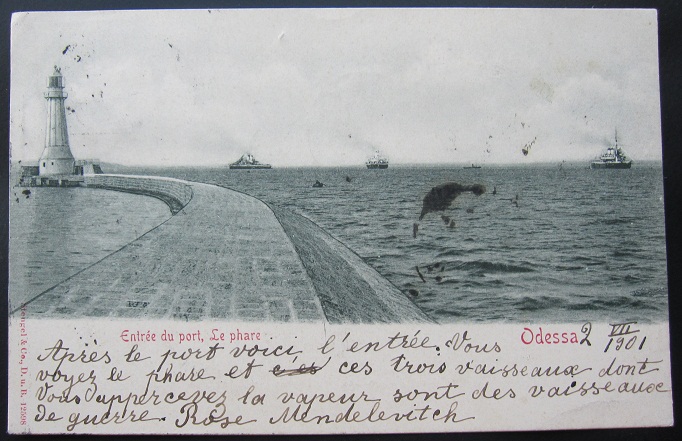 Entrée du port, Le phare
Odessa 2 VII 1901
Après le port voici, l'entrée. Vous
voyez le phare et ces ces trois vaisseaux dont
Vous appercevez la vapeur sont des vaisseaux
de guerre. Rose Mendelevitch
Stengel & Co., D. u. B. 12898